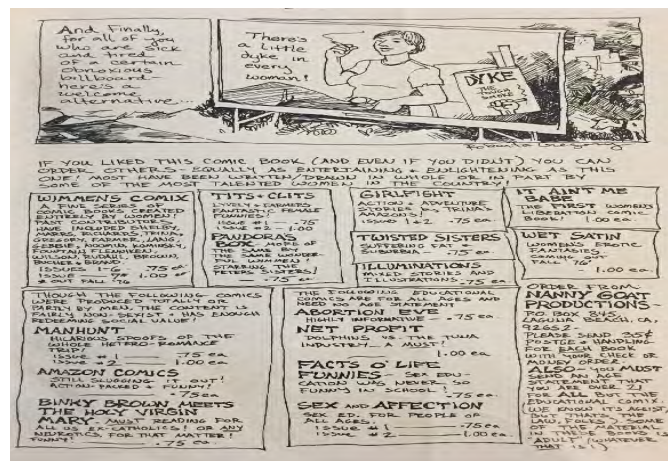 And finally,
for all of you
who are sick
and tired
of a certain
obnoxious
billboard-
here's a
welcome
alternative...
There's
a little
dyke in
every
woman!
DYKE
IF YOU LIKED THIS COMIC BOOK (AND EVEN IF YOU DIDN'T) YOU CAN
ORDER OTHERS- EQUALLY AS ENTERTAINING & ENLIGHTENING AS THIS
ONE! MOST HAVE BEEN WRITTEN/DRAWN IN WHOLE OR IN PART BY
SOME OF THE MOST TALENTED WOMEN IN THE COUNTRY!
WIMMEN'S COMIX
A FINE SERIES OF
COMIC BOOKS CREATED
ENTIRELY BY WOMEN!
PAST CONTRIBUTORS
HAVE INCLUDED SHELBY,
MARRS, RICHARDS, TRINA,
GREGORY, FARMER, LANG,
GEBBIE, NOOMIN, KOMINSKY,
FOUNTAIN, FLENNIKEN,
WILSON, RUDAHL, BROWN,
ISSUES 1-6 .75 ea
ISSUE 1.00 ea
OUT FALL '76
TITS & CLITS
LIVELY & LUSTY
FANTASTIC FEMALE
FUNNIES!
ISSUE #1 - .75
ISSUE #2 - 1.00
PANDORAS
BOX MORE OF
THE SAME BY
THE SAME WONDER-
FUL WIMMEN!
STARRING THE
PETERS SISTERS!
.75 ea
GIRLFIGHT
ACTION & ADVENTURE
STORIES BY TRINA'S
AMAZONS!
ISSUES 1 & 2 - .75 ea
TWISTED SISTERS
SUFFERING FAT &
SUBURBIA .75 ea
ILLUMINATIONS
MIXED STORIES AND
ILLUSTRATIONS- .75 ea
IT AIN'T ME
BABE
THE FIRST WOMEN'S
LIBERATION COMIC
BOOK! 1.00 ea
WET SATIN
WOMEN'S EROTIC
FANTASIES
COMING OUT
FALL '76!
1.00 ea
THOUGH THE FOLLOWING COMICS
WERE PRODUCED TOTALLY OR
PARTLY BY MEN, THE CONTENT IS
FAIRLY NON-SEXIST & HAS ENOUGH
REDEEMING SOCIAL VALUE!
MANHUNT
HILARIOUS SPOOFS OF THE
WHOLE HETERO-ROMANCE
TRIP!
ISSUE #1 .75 ea
ISSUE #2 1.00 ea
AMAZON COMICS
STILL SLUGGING IT OUT!
ACTION-PACKED & FUNNY!
.75 ea
BINKY BROWN MEETS
THE HOLY VIRGIN
MARY- MUST READING FOR
ALL US EX-CATHOLICS! OR ANY
NEUROTICS FOR THAT MATTER!
FUNNY!
.75 ea
THE FOLLOWING EDUCATIONAL
COMICS ARE FOR ALL AGES AND
NEED NO AGE STATEMENT
ABORTION EVE
HIGHLY INFORMATIVE! .75 ea
NET PROFIT
DOLPHINS VS. THE TUNA
INDUSTRY- A MUST!
1.00 ea
FACTS O' LIFE
FUNNIES SEX EDU-
CATION WAS NEVER SO
FUNNY IN SCHOOL!
.75 ea
SEX AND AFFECTION
SEX ED. FOR PEOPLE OF
ALL AGES.
ISSUE #1 .75 ea
ISSUE #2 1.00 ea
ORDER FROM:
NANNY GOAT
PRODUCTIONS-
PO BOX 845,
LAGUNA BEACH, CA,
92652
PLEASE SEND 35¢
POSTGE & HANDLING
FOR EACH BOOK
WITH YOUR CHECK OR
MONEY ORDER.
ALSO- YOU MUST
SEND AN AGE
STATEMENT THAT
YOU ARE OVER 21
FOR ALL BUT THE
EDUCATIONAL COMIX.
(WE KNOW IT'S AGEIST
BUT THAT'S THE
LAW, FOLKS. SOME
OF THE MATERIAL
IN THESE BOOKS IS
"ADULT" (WHATEVER
THAT IS!)